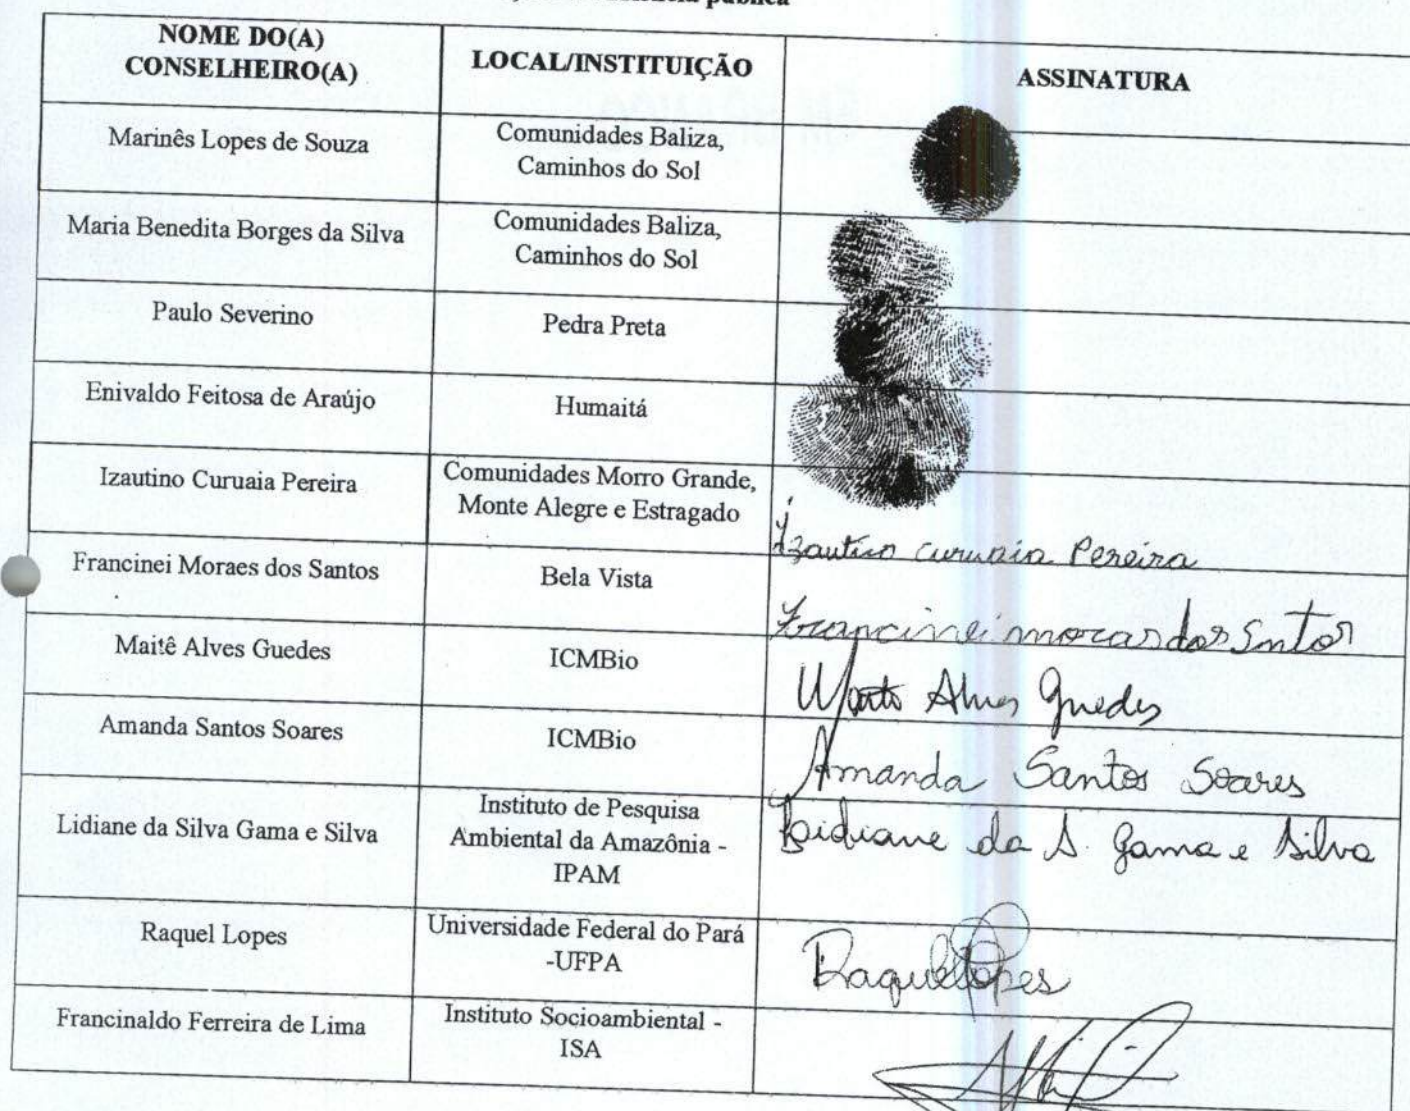 pública
NOME DO(A)
CONSELHEIRO(A)
LOCAL/INSTITUIÇÃO
ASSINATURA
Marinês Lopes de Souza
Comunidades Baliza,
Caminhos do Sol
Maria Benedita Borges da Silva
Comunidades Baliza,
Caminhos do Sol
Paulo Severino
Pedra Preta
Enivaldo Feitosa de Araújo
Humaitá
Izautino Curuaia Pereira
Comunidades Morro Grande,
Monte Alegre e Estragado
Izautino curuaia Pereira
Francinei Moraes dos Santos
Bela Vista
Francinei moraes dos Santos
Maitê Alves Guedes
ICMBio
Alves Guedes
Amanda Santos Soares
ICMBio
Amanda Santos Soares
Lidiane da Silva Gama e Silva
Instituto de Pesquisa
Ambiental da Amazônia -
IPAM
Lidiane da S. Gama e Silva
Raquel Lopes
Universidade Federal do Pará
-UFPA
Raquel Lopes
Francinaldo Ferreira de Lima
Instituto Socioambiental -
ISA